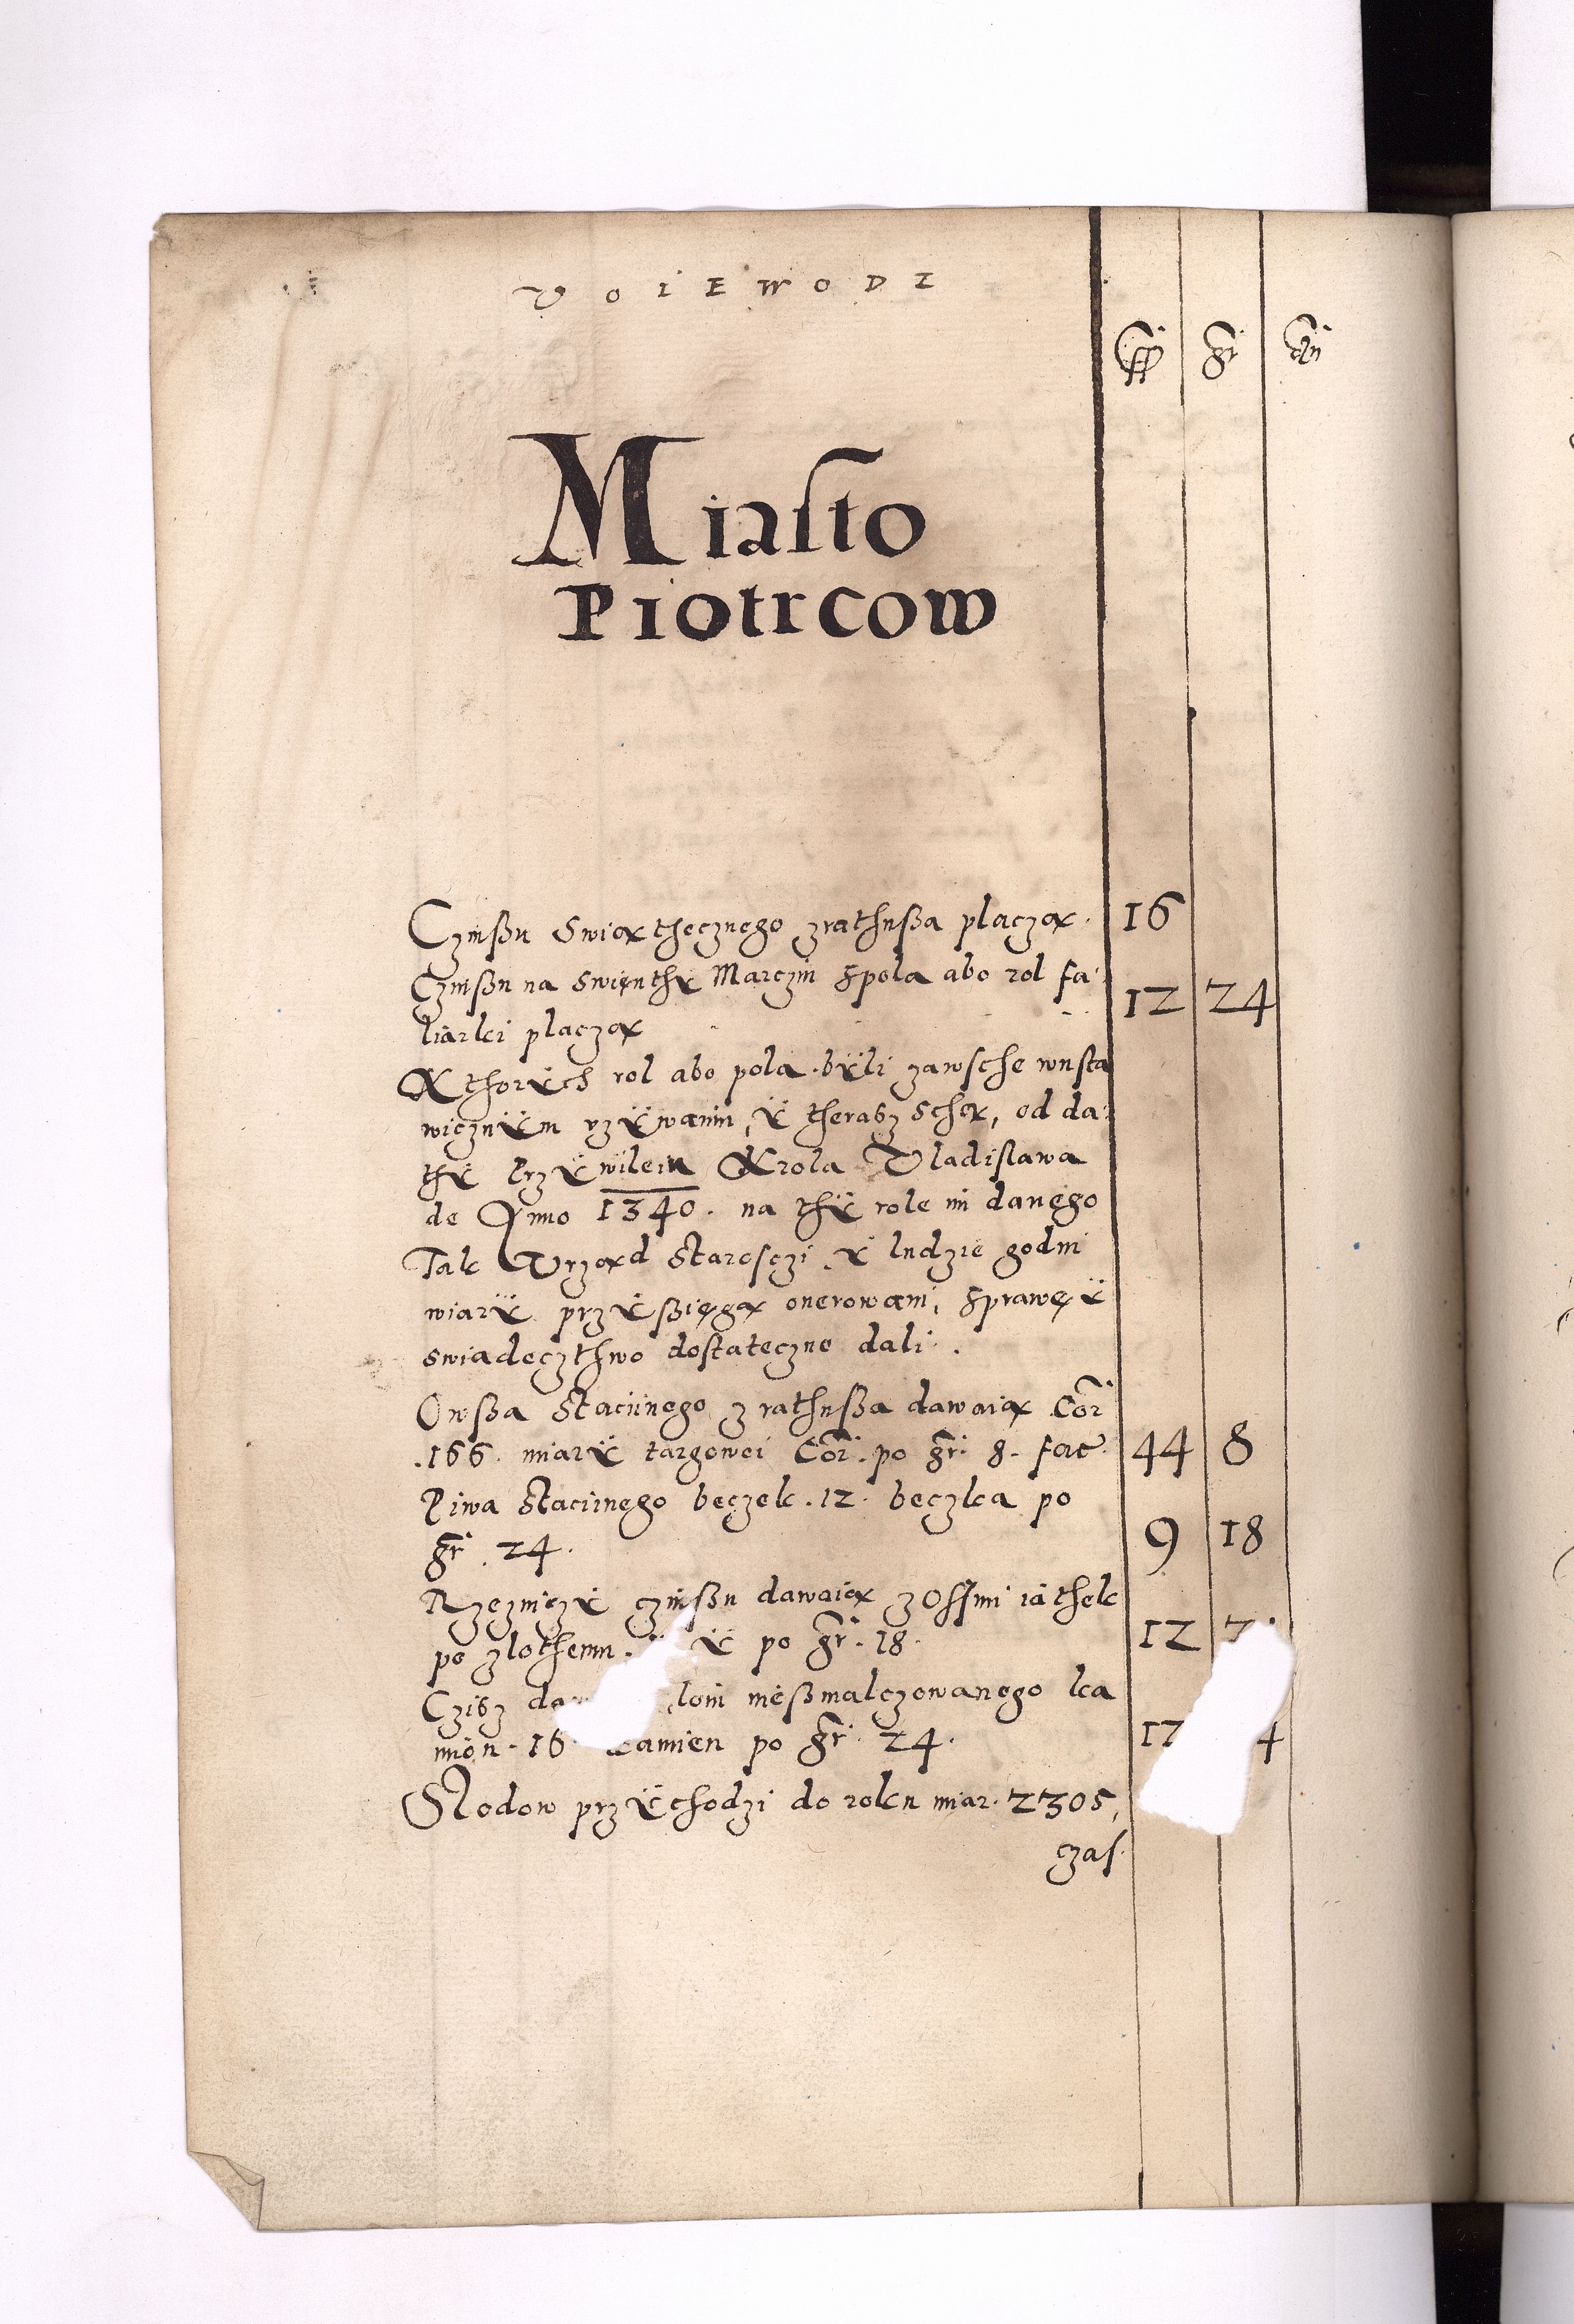 VOIEWODZ
fl gr dn
Miasto
Piotrcow
Czinßu Swiąthecznego zrathußa placzą. 16
Czinßu na Swięnthÿ Marczin spola abo rol fa
liarki placzą 12 24
Kthorÿch rol abo pola bÿli zawsche wusta
wicznÿm vzÿwaniu, ÿ therasz Schą, od da
thÿ Przÿwileiu Krola Vladislawa
de Anno 1340. na thÿ role im danego
Tak Vrząd Starosczi, ÿ ludzie godni
wiarÿ przÿßięgą onerowani, sprawę ÿ
swiadecztwo dostateczne dali.
Owßa Staciinego z rathußa dawaią Cor
.166. miarÿ targowei Cor. po gr. 8. fac. 44 8
Piwa Staciinego beczek .12. beczka po
gr. 24. 9 18
Rzezniczÿ czinßu dawaią z Ossmi iathek
po zlothemu. ÿ po gr. 18. 12
Czisz loiu nießmalczowanego ka
mien. 16 kamien po gr. 24. 12 4
Slodow przÿchodzi do roku miar. 2305,
czas.